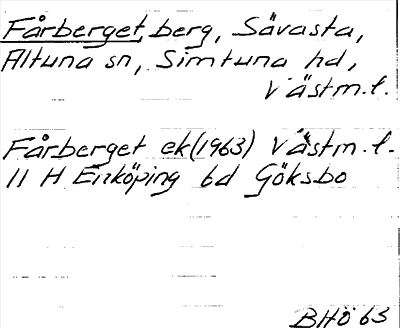 Fårberget, berg, Sävasta,
Altuna sn, Simtuna hd,
Västm.l.
Fårberget ek(1963) Västm.l.
11 H Enköping 6d Göksbo
BHö 63